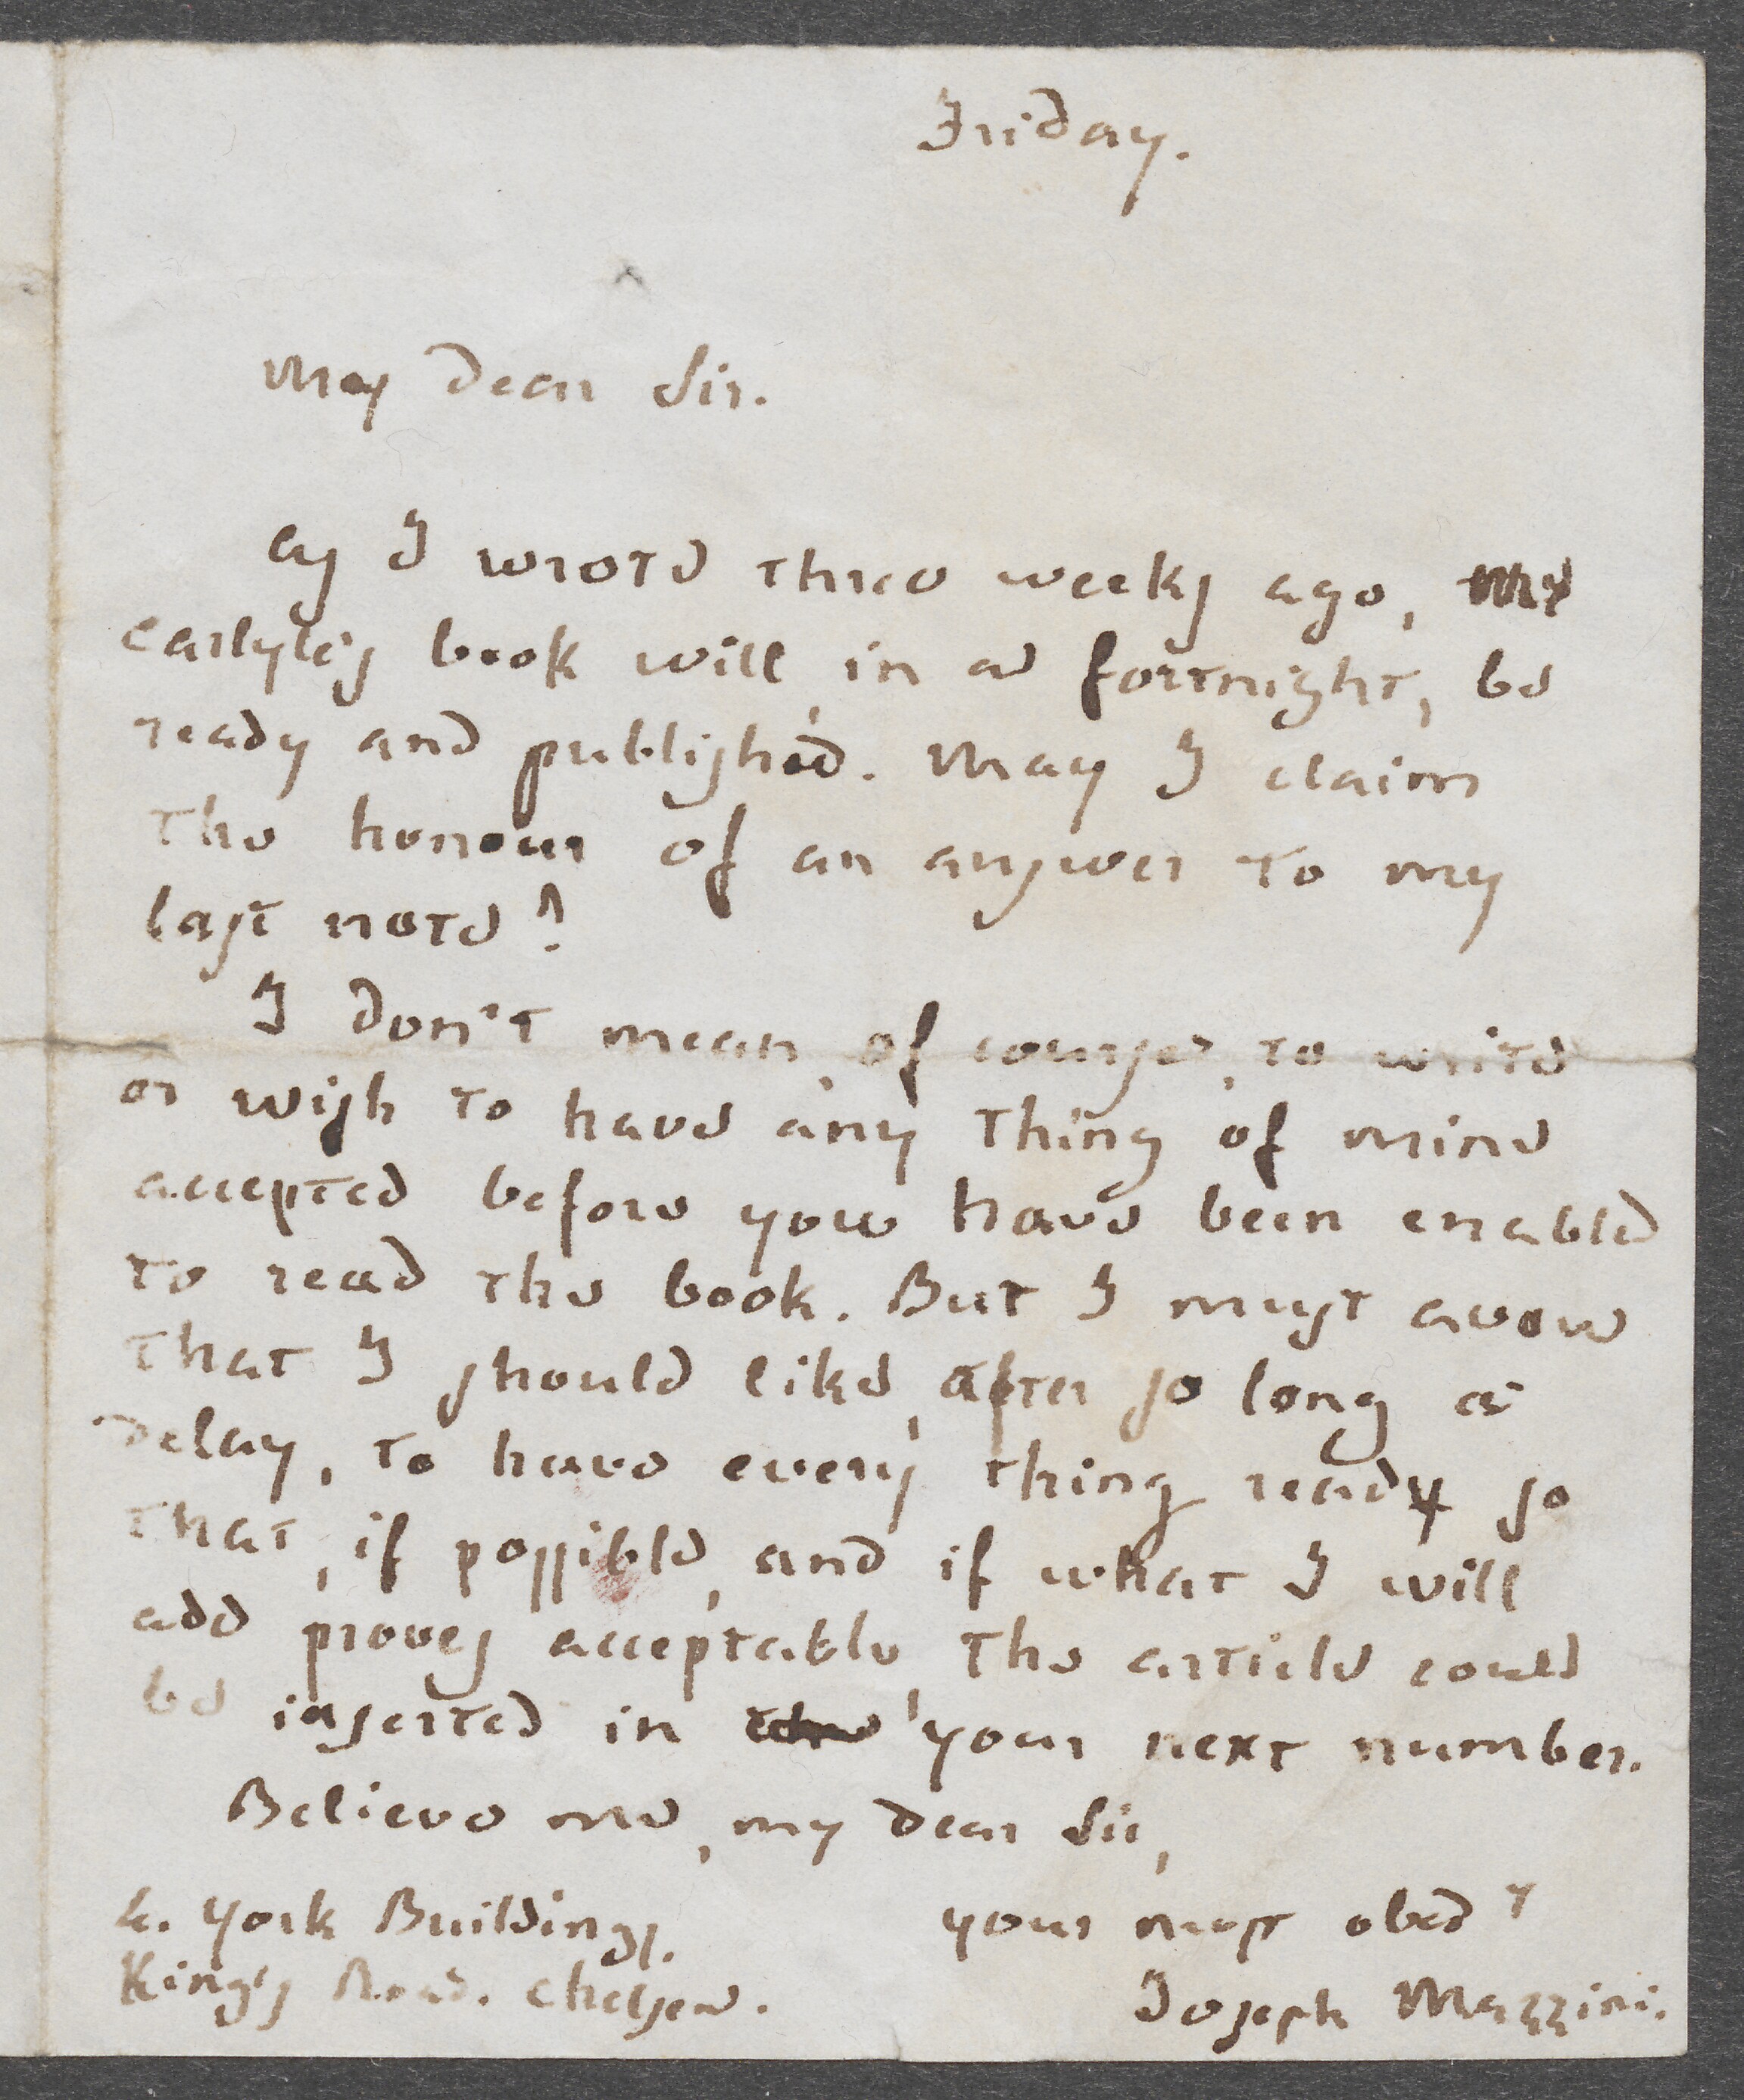 Friday.
My dear Sir.
As I wrote three weeks ago, Mr
Carlyle's book will, in a fortnight, be
ready and publish'd. May I claim
the honour of an answer to my
last note?
I don't mean, of course, to write
or wish to have any thing of mine
accepted before you have been enabled
to read the book. But I must avow
that I should like, after so long a
delay, to have every thing ready so
that, if possible, and if what I will
add proves acceptable, the article could
be inserted in the your next number.
Believe me, my dear Sir,
your most obed t
Joseph Mazzini.
4. York Buildings.
King's Road. Chelsea.